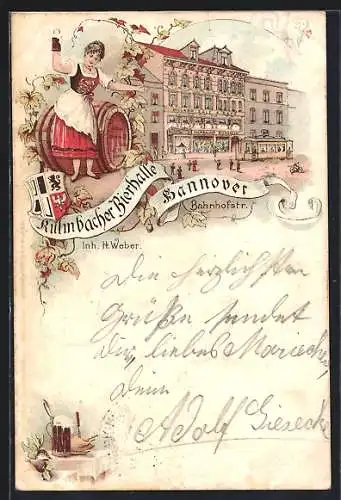 Kulmbacher Bierhalle
Hannover
Bahnhofstr.
Inh. H. Weber.
Die herzlichsten
Grüße sendet
Dir, liebes Mariechen
Dein
Adolf Gieseck